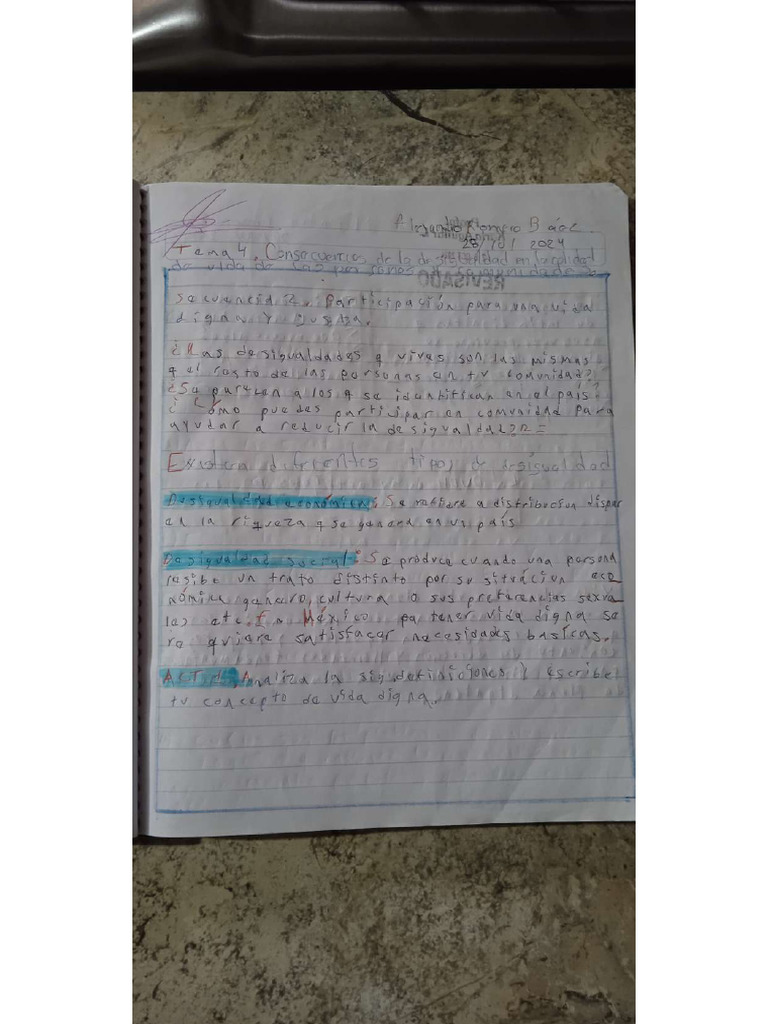 Alejandro Romero Báez
28/10/2024
Tema 4. Consecuencias de la desigualdad en la calidad
de vida de las personas y comunidades
Secuencia 2. Participación para una vida
digna y justa.
¿Las desigualdades q vives son las mismas
q el resto de las personas en tu comunidad?
¿Se parecen a los q se identifican en el país?
¿Cómo puedes participar en comunidad para
ayudar a reducir la desigualdad?
Existen diferentes tipos de desigualdad
Desigualdad económica: Se refiere a distribucíon dispar
en la riqueza q se genera en un país
Desigualdad social: Se produce cuando una persona
resibe un trato distinto por su situácion eco
nómica genero, cultura o sus preferencias sexua
les etc. En México pa tener vida digna se
re quiere satisfacer necesidades basicas.
ACT 1 Analiza la sig definiciones y escribe
tu concepto de vida digna.
REVISADO